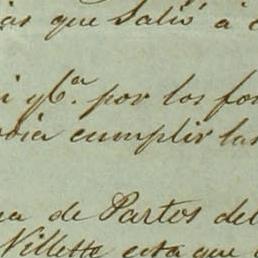 ias que Salió á
i yb.ª por los fon
odia cumplir las
na de Partos del
Villette esta que